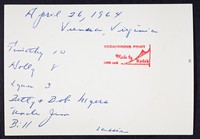 April 26, 1964
Vienna, Virginia
Timothy 10
Holly 8
Lynn 3
Betty & Bob Myers
Uncle Jim
Bill
Made by
Kodak